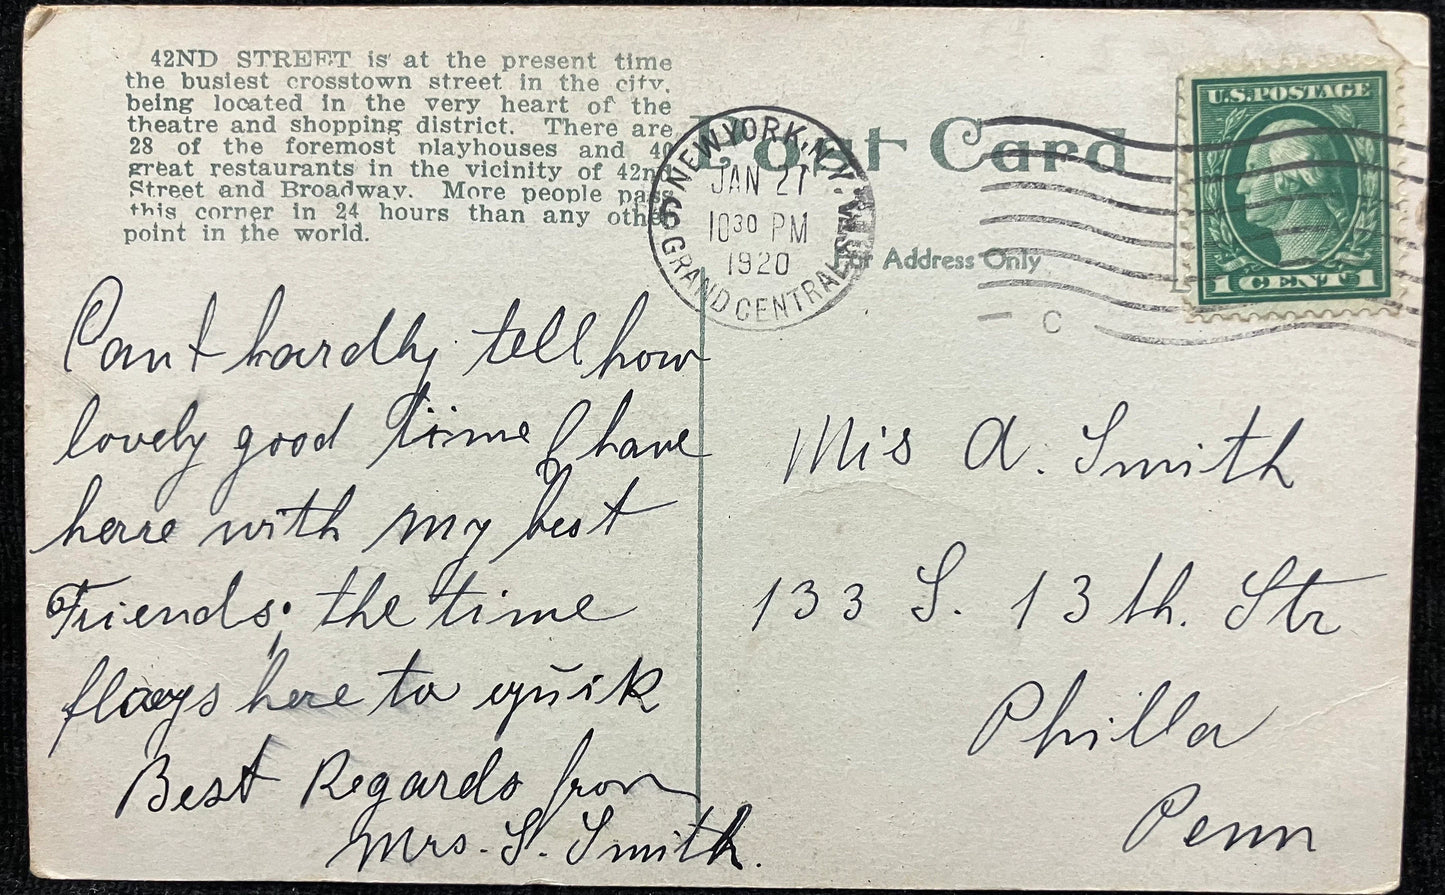 42ND STREET is at the present time
the busiest crosstown street in the city,
being located in the very heart of the
theatre and shopping district. There are
28 of the foremost playhouses and 40
great restaurants in the vicinity of 42nd
Street and Broadway. More people pass
this corner in 24 hours than any other
point in the world.
Post Card
For Address Only
NEW YORK, N.Y.
GRAND CENTRAL
JAN 27
10 30 PM
1920
C
U.S. POSTAGE
1 CENT 1
Can't hardly tell how
lovely good time I have
herre with my best
Friends, the time
flays here to quik
Best Regards from
Mrs. S. Smith.
Mis A. Smith
133 S. 13 th. Str
Philla
Penn